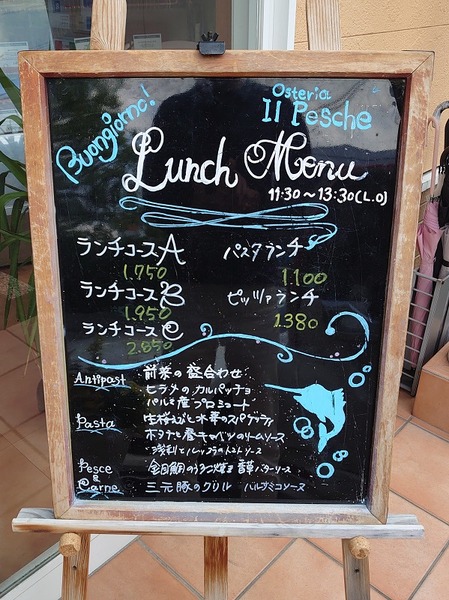 Buongiorno!
Osteria
Il Pesche
Lunch Menu
11:30～13:30(L.O)
ランチコース A
1.750
ランチコース B
1.950
ランチコース C
2.850
パスタランチ
1.100
ピッツァランチ
1.380
Antipast
前菜の盛合わせ
ヒラメのカルパッチョ
パルマ産プロシュート
Pasta
生桜えびと水菜のスパゲティ
ホタテと春キャベツのクリームソース
浅利とルッコラのトマトソース
Pesce
&
Carne
金目鯛のうろこ焼き バターソース
三元豚のグリル バルサミコソース